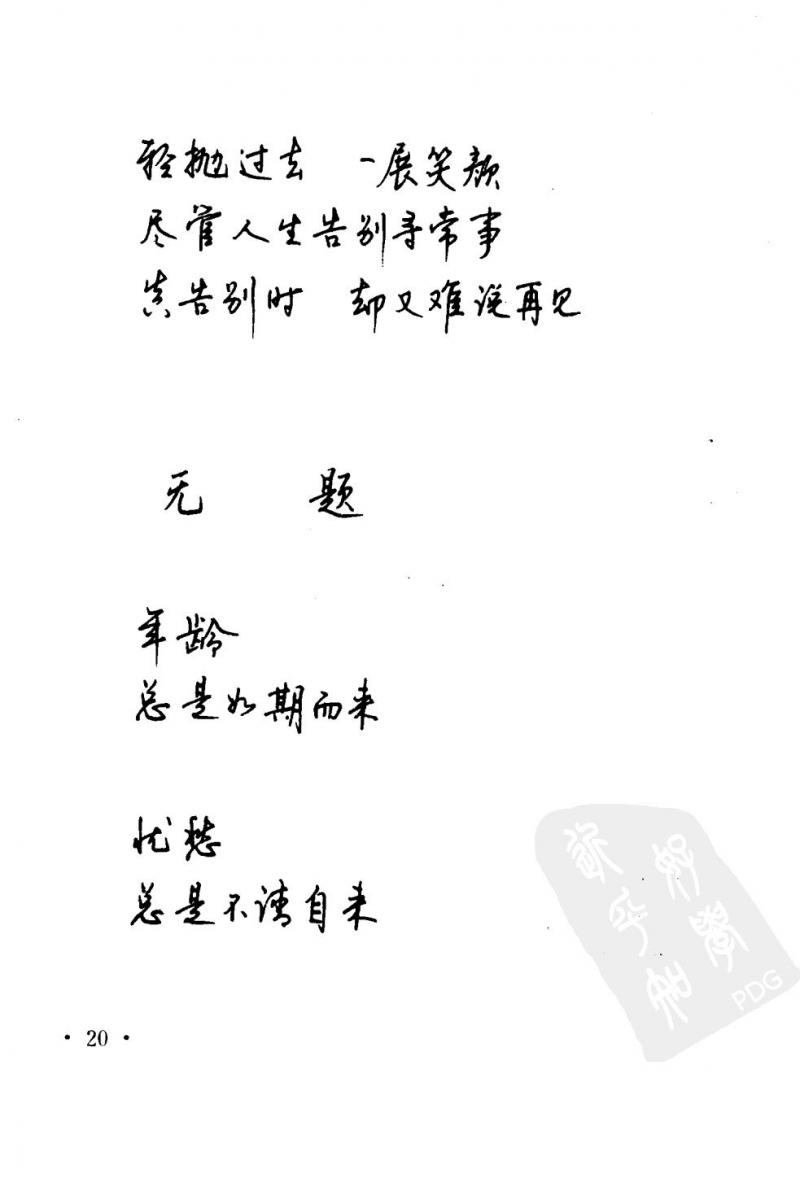 轻抛过去　一展笑颜
尽管人生告别寻常事
真告别时　却又难说再见
无　题
年龄
总是如期而来
忧愁
总是不请自来
· 20 ·
PDG